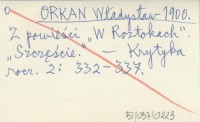 ORKAN Władysław-1900.
Z powieści „W Roztokach".
„Szczęście." — Krytyka
rocz. 2: 332-337.
51/037/0223